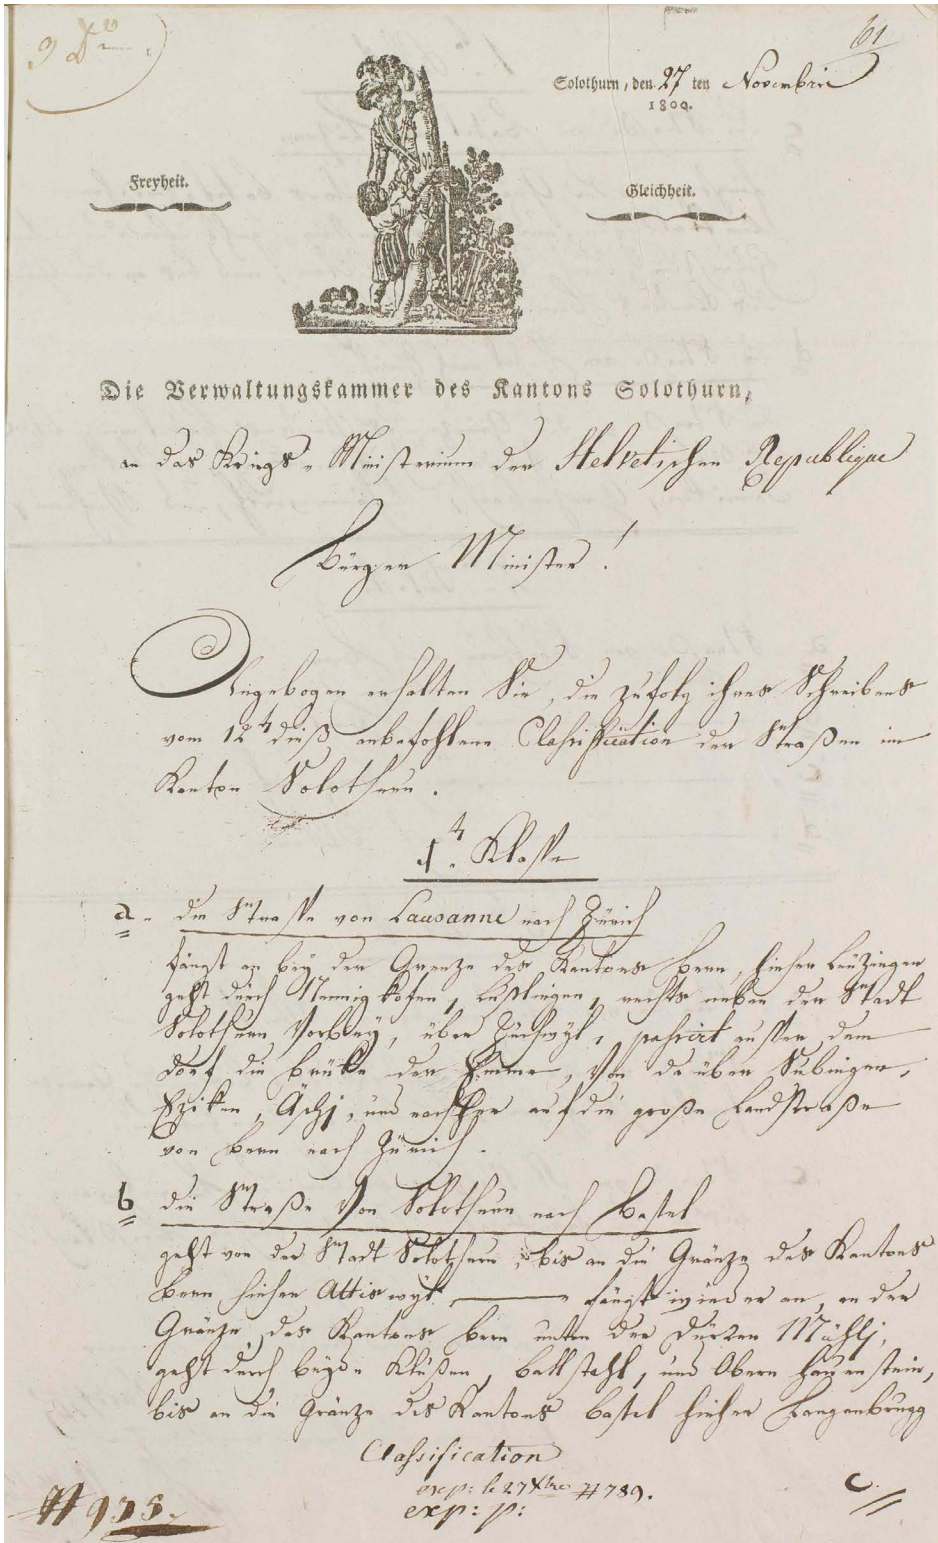 61
Solothurn, den 27 ten Novembris
1800.
Freyheit.
Gleichheit.
Die Verwaltungskammer des Kantons Solothurn,
an das Kriegs-Ministerium der Helvetischen Republique
Bürger Minister!
Eingebogen erhalten Sie, die zufolg ihres Schreibens
vom 12t dieß anbefohlene Classification der Straßen im
Kanton Solothurn.
1t. Klasse
a. die Strasse von Lausanne nach Zürich
fängt an bey der Grenze des Kantons Bern, hieher Leuzingen
geht durch Nennigkofen, Lüßlingen, rechts neben der Stadt
Solothurn Vorbey, über Zuchwyl, passirt ausser dem
Dorf die Brüke der Emme, Von da über Subingen,
Eziken, Äschj, und nachher auf die große Landstraße
von Bern nach Zürich.
b die Straße Von Solothurn nach Bassel
geht von der Stadt Solothurn bis an die Gränze des Kantons
Bern hieher Attiswyl fängt wieder an, an der
Gränze des Kantons Bern unter der Dürren Mühlj,
geht durch beyde Klußen, Ballstahl, und Obern Hauenstein,
bis an die Gränze des Kantons Bassel hieher Langenbrugg
Classification
exp: le 27 Xbre # 789.
exp: p:
c.
# 935.